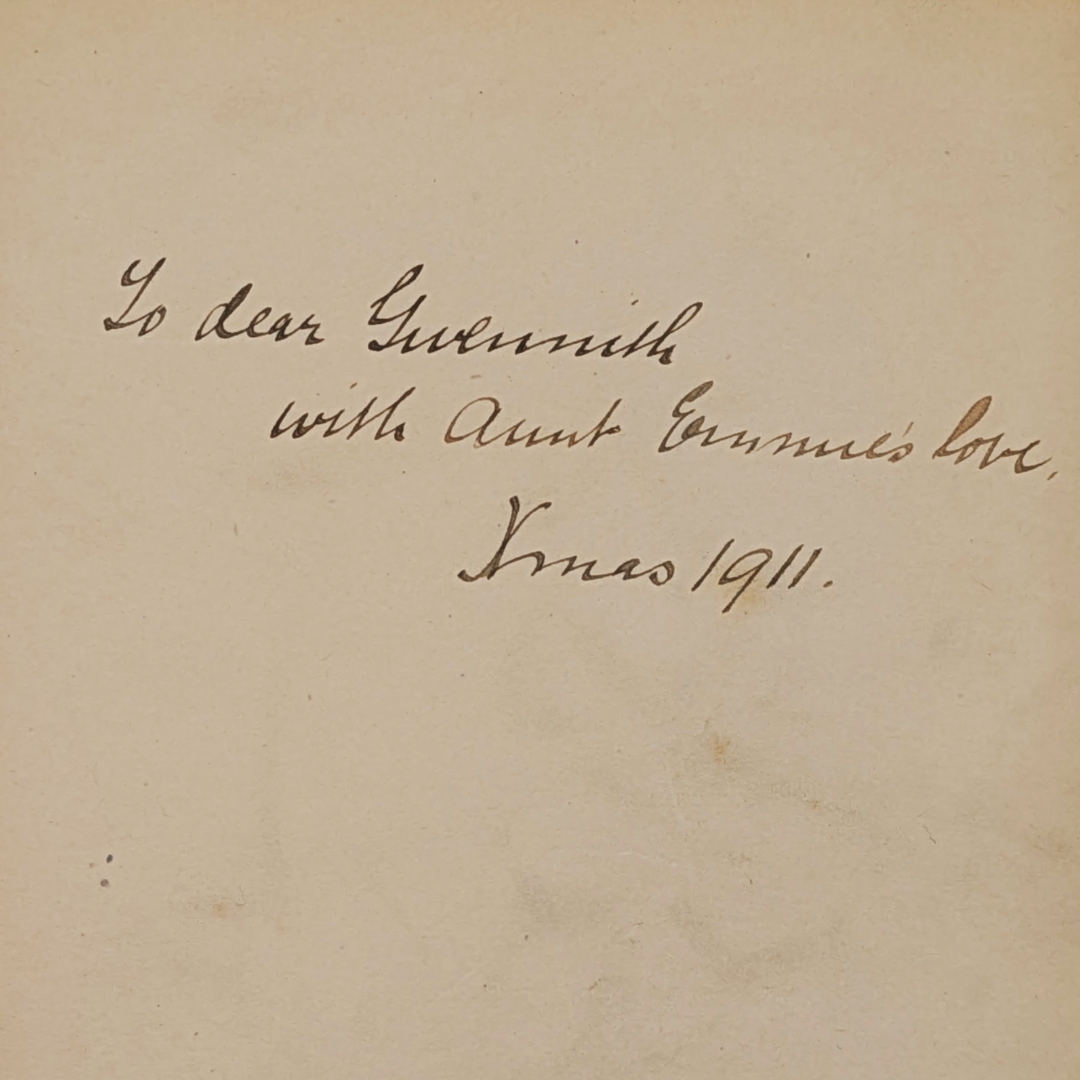 To dear Gwennith
with Aunt Emmie's love.
Xmas 1911.